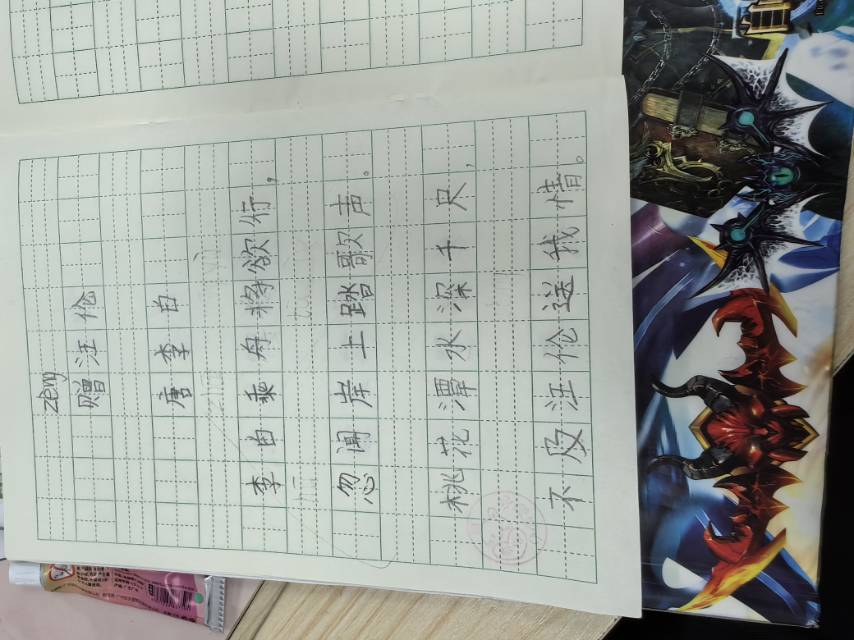 zèng
赠汪伦
唐李白
李白乘舟将欲行，
忽闻岸上踏歌声。
桃花潭水深千尺，
不及汪伦送我情。